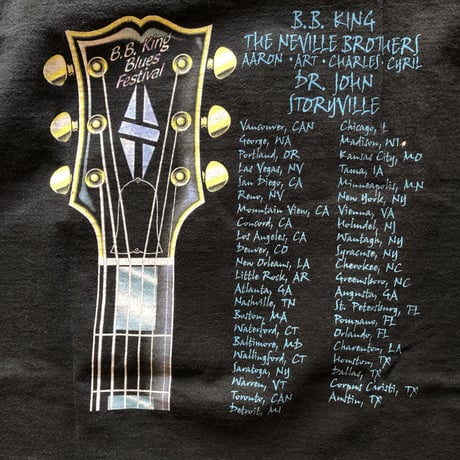 B.B. King
Blues
Festival
B.B. KING
THE NEVILLE BROTHERS
AARON · ART · CHARLES · CYRIL
DR. JOHN
STORYVILLE
Vancouver, CAN
George, WA
Portland, OR
Las Vegas, NV
San Diego, CA
Reno, NV
Mountain View, CA
Concord, CA
Los Angeles, CA
Denver, CO
New Orleans, LA
Little Rock, AR
Atlanta, GA
Nashville, TN
Boston, MA
Waterford, CT
Baltimore, MD
Wallingford, CT
Saratoga, NY
Warren, VT
Toronto, CAN
Detroit, MI
Chicago, IL
Madison, WI
Kansas City, MO
Tama, IA
Minneapolis, MN
New York, NY
Vienna, VA
Holmdel, NJ
Wantagh, NY
Syracuse, NY
Cherokee, NC
Greensboro, NC
Augusta, GA
St. Petersburg, FL
Pompano, FL
Orlando, FL
Charenton, LA
Houston, TX
Dallas, TX
Corpus Christi, TX
Austin, TX